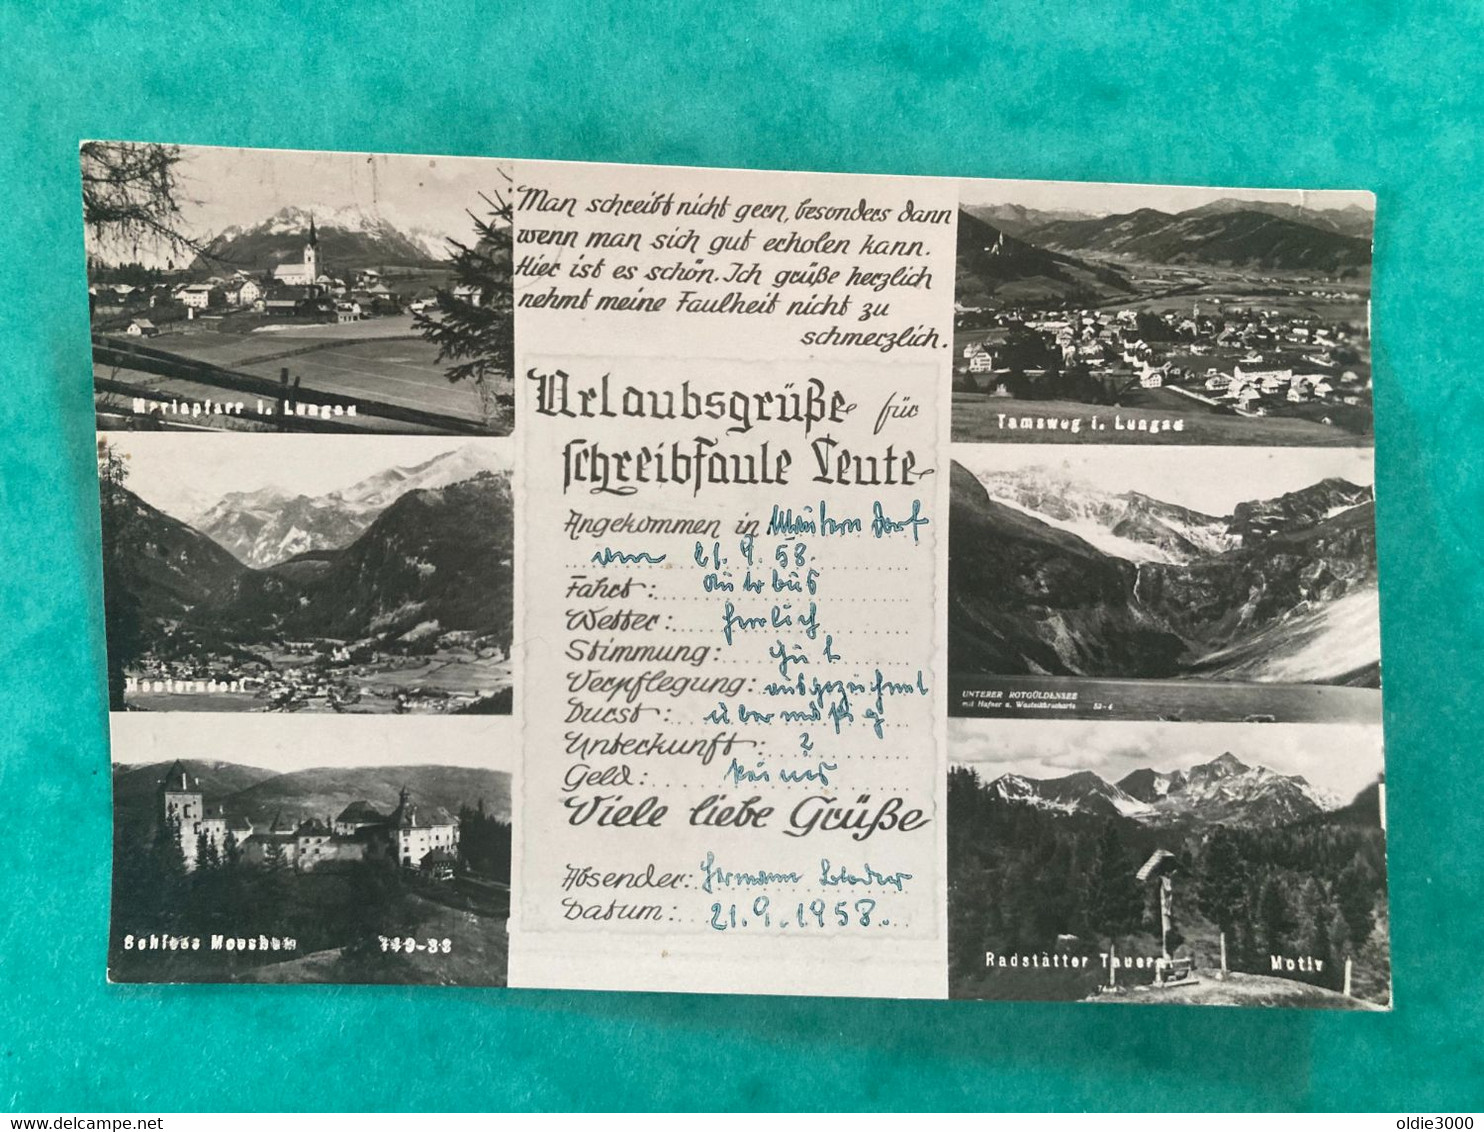 Man schreibt nicht gern, besonders dann
wenn man sich gut erholen kann.
Hier ist es schön. Ich grüße herzlich
nehmt meine Faulheit nicht zu
schmerzlich.
Urlaubsgrüße für
schreibfaule Leute
Angekommen in Mauterndorf
am 21.9.58.
Fahrt: Autobus
Wetter: herrlich
Stimmung: gut
Verpflegung: ausgezeichnet
Durst: übermäßig
Unterkunft: ?
Geld: keines
Viele liebe Grüße
Absender: Hermann
Datum: 21.9.1958.
Mariapfarr i. Lungau
Mauterndorf
Schloss Moosham 149-38
Tamsweg i. Lungau
UNTERER ROTGÜLDENSEE
mit Hafner u. Wastelkarscharte 53-4
Radstätter Tauern Motiv
oldie3000